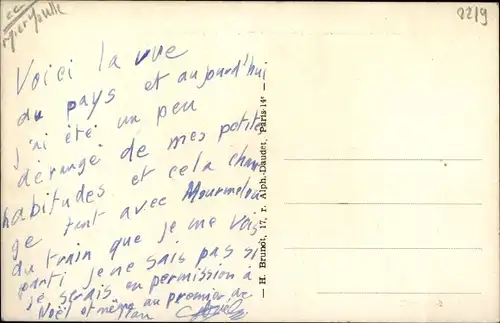 2219
Voici la vue
du pays et aujourd'hui
j'ai été un peu
dérangé de mes petits
habitudes et cela chan
ge tant avec Mourmelon
du train que je me vois
parti je ne sais pas si
je serais en permission à
Noël et même au premier de
l'an
— H. Brunot, 17, r. Alph.-Daudet, Paris-14e —